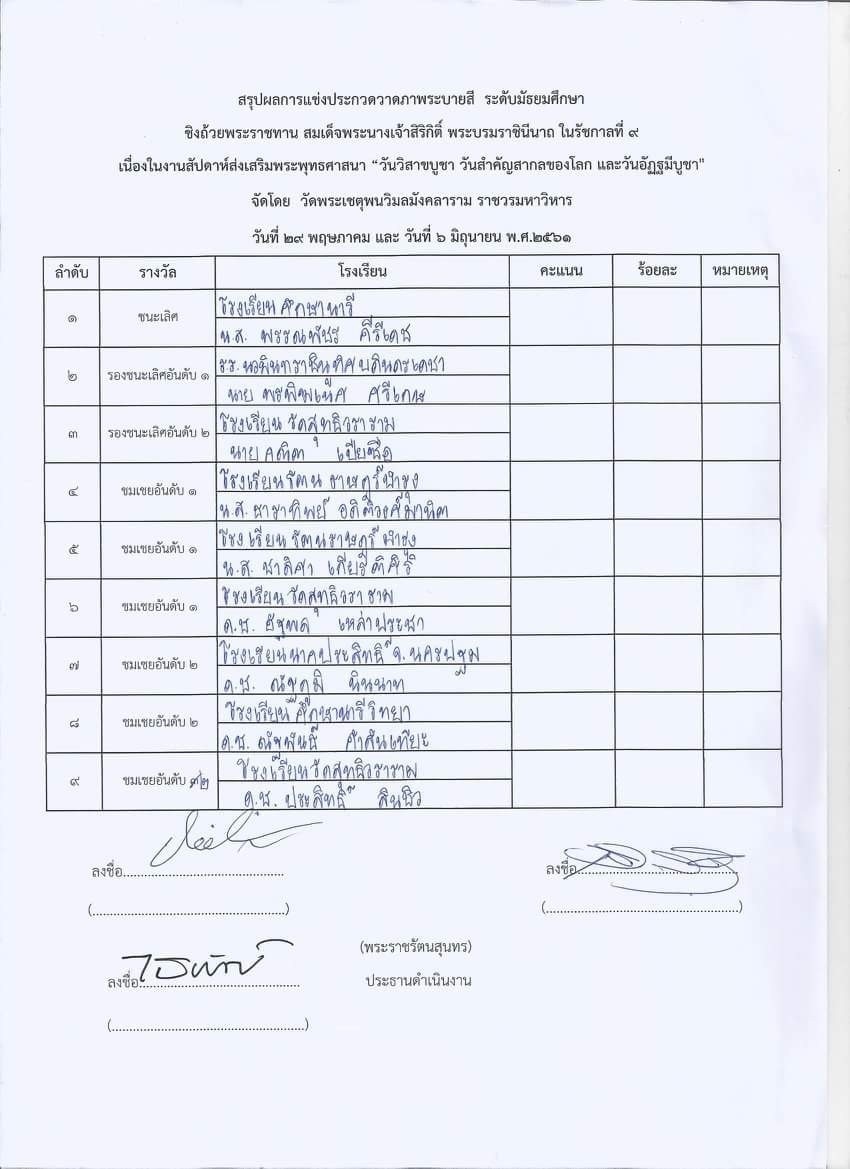 สรุปผลการแข่งประกวดวาดภาพระบายสี ระดับมัธยมศึกษา
ชิงถ้วยพระราชทาน สมเด็จพระนางเจ้าสิริกิติ์ พระบรมราชินีนาถ ในรัชกาลที่ ๙
เนื่องในงานสัปดาห์ส่งเสริมพระพุทธศาสนา “วันวิสาขบูชา วันสำคัญสากลของโลก และวันอัฏฐมีบูชา"
จัดโดย วัดพระเชตุพนวิมลมังคลาราม ราชวรมหาวิหาร
วันที่ ๒๙ พฤษภาคม และ วันที่ ๖ มิถุนายน พ.ศ.๒๕๖๑
ลำดับ รางวัล โรงเรียน คะแนน ร้อยละ หมายเหตุ
๑ ชนะเลิศ โรงเรียนศึกษานารี
น.ส. พรรณพัชร คีรีเดช
๒ รองชนะเลิศอันดับ ๑ ร.ร. นวมินทราชินทิศ บดินทรเดชา
นาย
๓ รองชนะเลิศอันดับ ๒ โรงเรียน วัดสุทธิวราราม
นาย
๔ ชมเชยอันดับ ๑ โรงเรียนรัตนราษฎร์บำรุง
น.ส. ธาราทิพย์
๕ ชมเชยอันดับ ๑ โรงเรียน รัตนราษฎร์บำรุง
น.ส. ชาลิศา เกียรติศิริ
๖ ชมเชยอันดับ ๑ โรงเรียน วัดสุทธิวราราม
ด.ช. ธัชพล เหล่าประชา
๗ ชมเชยอันดับ ๒ โรงเรียนนาคประสิทธิ์ จ.นครปฐม
ด.ช. ณัฐภูมิ นินนาท
๘ ชมเชยอันดับ ๒ โรงเรียน ศึกษานารีวิทยา
ด.ช.
๙ ชมเชยอันดับ ๒ โรงเรียนวัดสุทธิวราราม
ด.ช. ประสิทธิ์ สินชิว
ลงชื่อ ลงชื่อ
(พระราชรัตนสุนทร)
ลงชื่อ ประธานดำเนินงาน